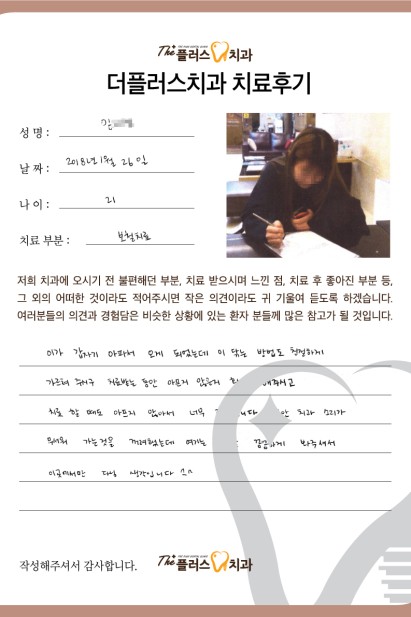 The+ 플러스치과
더플러스치과 치료후기
성 명 : 김
날 짜 : 2018년 1월 26일
나 이 : 21
치료 부분 : 보철치료
저희 치과에 오시기 전 불편했던 부분, 치료 받으시며 느낀 점, 치료 후 좋아진 부분 등,
그 외의 어떠한 것이라도 적어주시면 작은 의견이라도 귀 기울여 듣도록 하겠습니다.
여러분들의 의견과 경험담은 비슷한 상황에 있는 환자 분들께 많은 참고가 될 것입니다.
이가 갑자기 아파서 오게 되었는데 이 닦는 방법도 친절하게
가르쳐 주시구 치료받는 동안 아프지 않은지 해주시고
치료 할 때도 아프지 않아서 너무 니다 치과 소리가
무서워 가는것을 꺼려했는데 여기는 꼼꼼하게 봐주셔서
이곳에서만 다닐 생각입니다 ㅎㅎ
작성해주셔서 감사합니다.
The+ 플러스치과